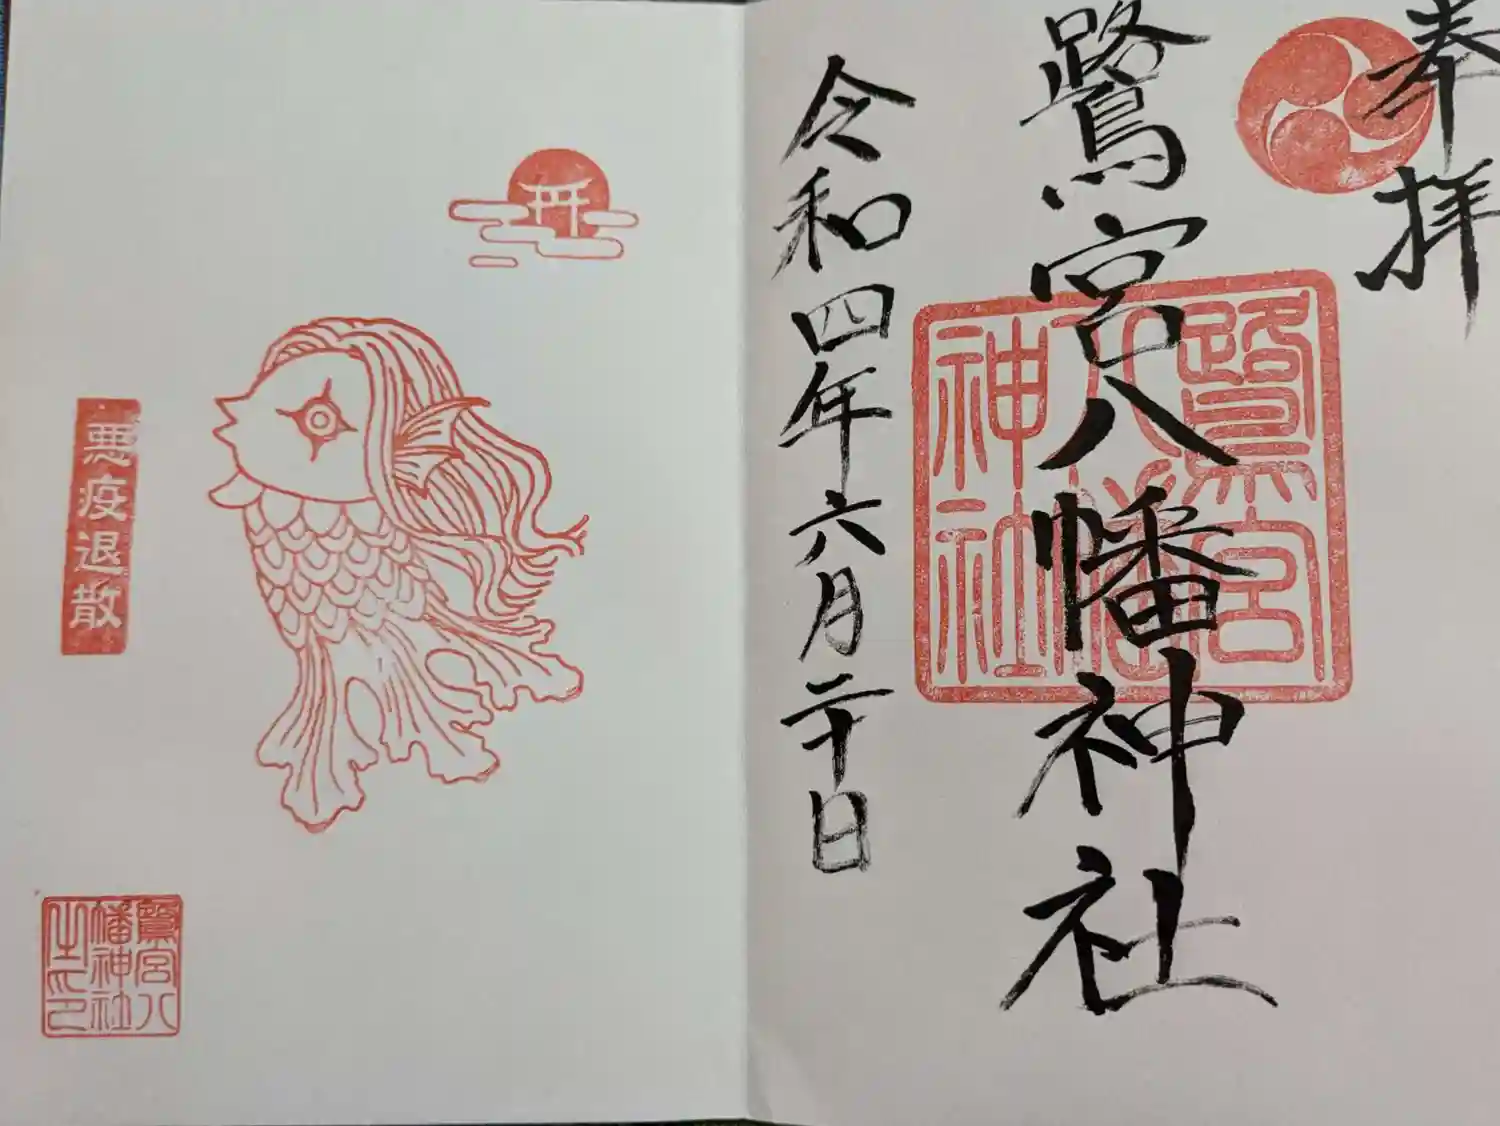 奉拝
鷺宮八幡神社
鷺宮八幡神社
令和四年六月二十日
悪疫退散
鷺宮八
幡神社
之印